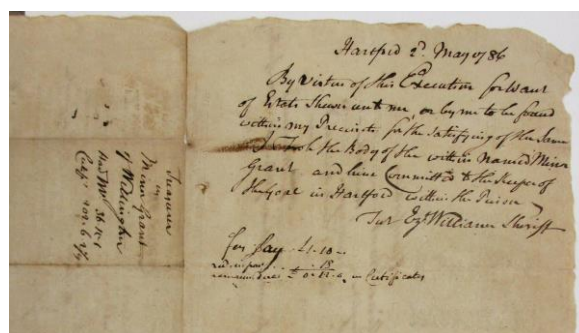 Hartford 2d. May 1786
By Virtue of this Execution for Want
of Estate Shewn unto me, or by me to be found
within my Precincts for the Satisfying of the Same
I Took the Body of the within Named Minor
Grant and have Committed to the Keeper of
the Goal in Hartford within the Prison
Test Ezl Williams Sheriff
for Fay £1-10-
in Certificates
Minor Grant
of Willington